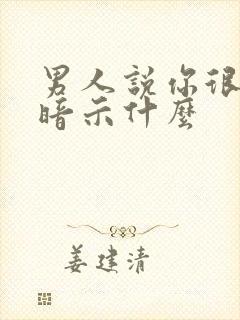 男人説你很
暗示什麼
姜建清